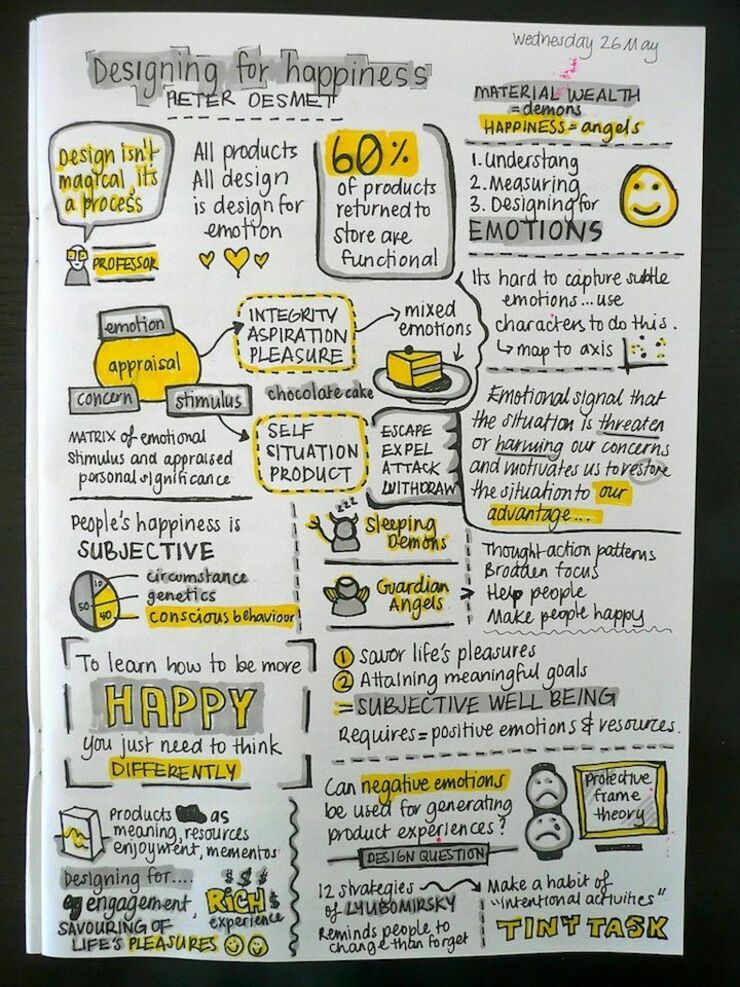 Wednesday 26 May
Designing for happiness
PIETER DESMET
MATERIAL WEALTH
= demons
HAPPINESS = angels
Design isn't
magical, it's
a process
PROFESSOR
All products
All design
is design for
emotion
60%
of products
returned to
store are
functional
1. Understang
2. Measuring
3. Designing for
EMOTIONS
Its hard to capture subtle
emotions...use
characters to do this.
map to axis
emotion
appraisal
concern
stimulus
INTEGRITY
ASPIRATION
PLEASURE
mixed
emotions
chocolate cake
MATRIX of emotional
Stimulus and appraised
personal significance
SELF
SITUATION
PRODUCT
ESCAPE
EXPEL
ATTACK
WITHDRAW
Emotional signal that
the situation is threaten
or harming our concerns
and motivates us to restore
the situation to our
advantage...
People's happiness is
SUBJECTIVE
10
50
40
circumstance
genetics
conscious behaviour
zzz
Sleeping
Demons
Guardian
Angels
Thought-action patterns
Brodden focus
Help people
Make people happy
To learn how to be more
HAPPY
you just need to think
DIFFERENTLY
1 savor life's pleasures
2 Attaining meaningful goals
= SUBJECTIVE WELL BEING
Requires = positive emotions & resources.
Can negative emotions
be used for generating
product experiences?
DESIGN QUESTION
Protective
frame
theory
Products as
meaning, resources
enjoyment, mementos
Designing for....
engagement,
SAVOURING OF
LIFE'S PLEASURES
$ $ $
RICH $
experience
12 strategies
of LYUBOMIRSKY
Reminds people to
change than forget
Make a habit of
"intentional activities"
TINY TASK